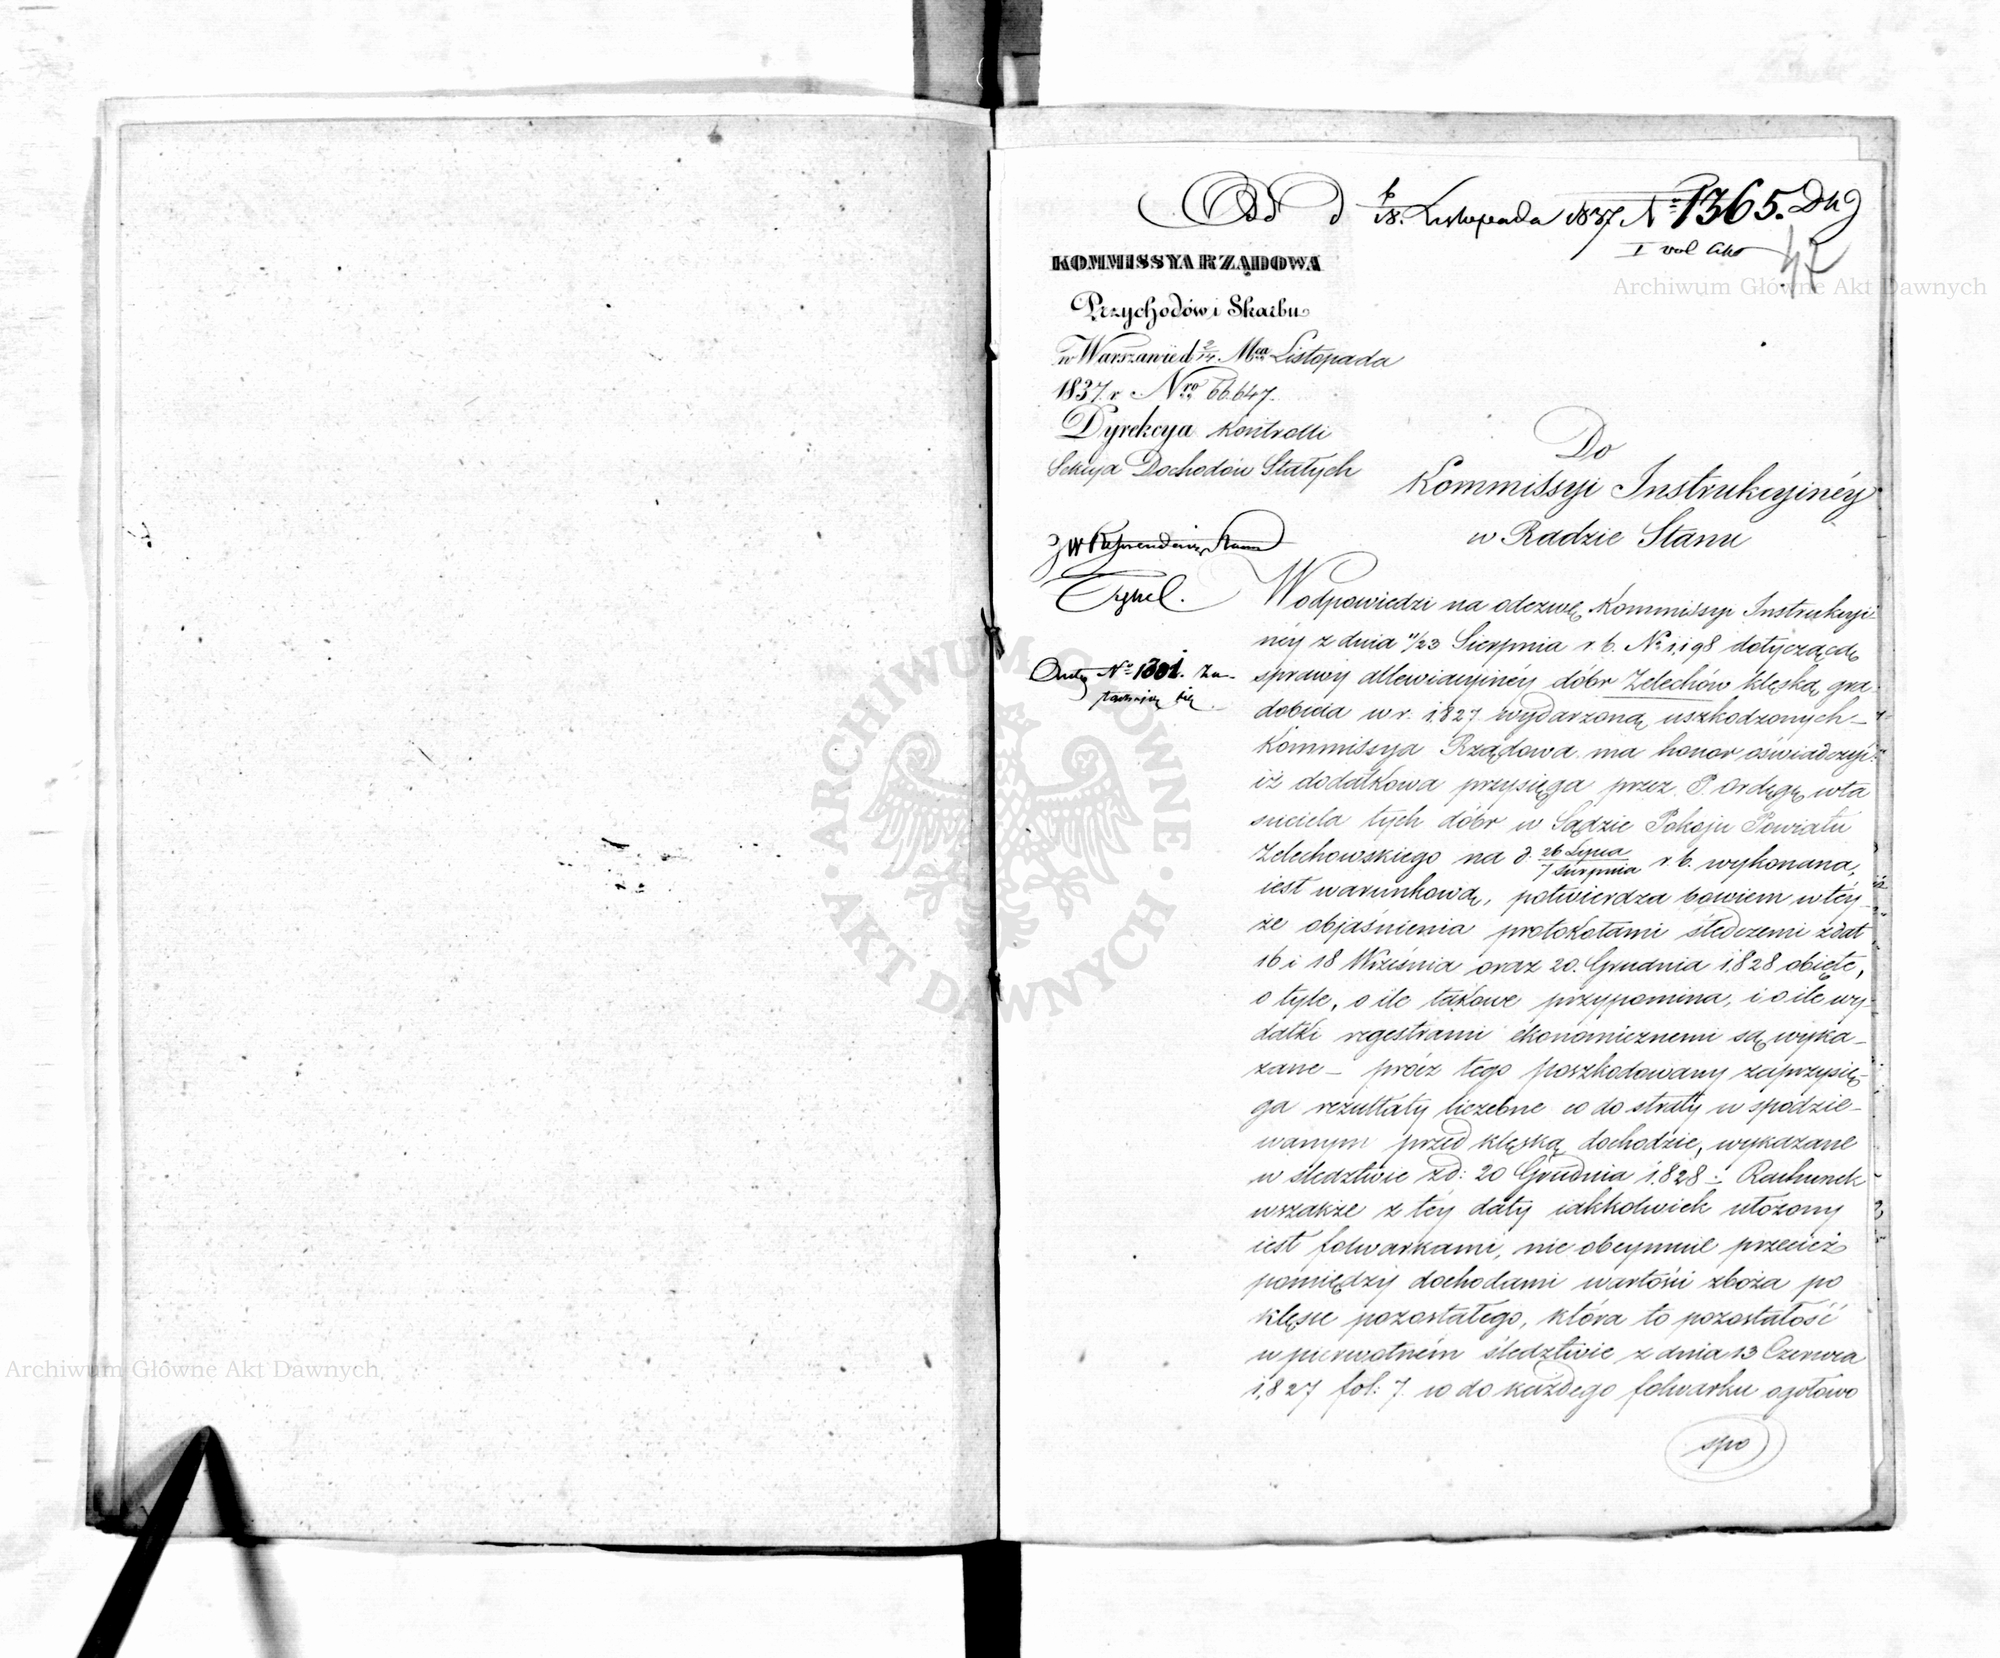 Odd d 6/18. Listopada 1837. N: 1365. Dz
I vol Akt
47
KOMMISSYA RZĄDOWA
Przychodów i Skarbu
w Warszawie d 2/14. Mca Listopada
1837. r Nro 66.647.
Dyrekcya Kontrolli
Sekcya Dochodów Stałych
Do
Kommissyi Instrukcyinéy
w Radzie Stanu
JW Referendarz Stanu
No 1301. Za-
łatwiając się
W odpowiedzi na odezwę Kommissyi Instrukcyi-
néy z dnia 11/23 Sierpnia r. b. No 1,198 dotyczącą
sprawy allewiacyinéy dóbr Zelechów klęską gra-
dobicia w r. 1827 wydarzoną uszkodzonych –
Kommissya Rządowa ma honor oświadczyć
iż dodatkowa przysięga przez P. Ordęgę wła
sciciela tych dóbr w Sądzie Pokoju Powiatu
Zelechowskiego na d. 26 Lipca/7 Sierpnia r. b. wykonana,
iest warunkową, potwierdza bowiem w téy-
że objaśnienia protokołami śledczemi z dat
16 i 18 Września oraz 20. Grudnia 1828 obięte,
o tyle, o ile takowe przypomina, i o ile wy-
datki regestrami ekonomicznemi są wyka-
zane – prócz tego poszkodowany zaprzysię-
ga rezultaty liczebne co do straty w spodzie-
wanym przed klęską dochodzie, wykazane
w śledztwie z d: 20 Grudnia 1828 –. Rachunek
wszakże z téy daty iakkolwiek ułożony
iest folwarkami, nie obeymuie przecież
pomiędzy dochodami wartości zboża po
klęsce pozostałego, która to pozostałość
w pierwotném śledztwie z dnia 13 Czerwca
1827 fol: 7. co do każdego folwarku ogołowo
spo
ARCHIWUM GŁÓWNE AKT DAWNYCH
Archiwum Główne Akt Dawnych
Archiwum Główne Akt Dawnych